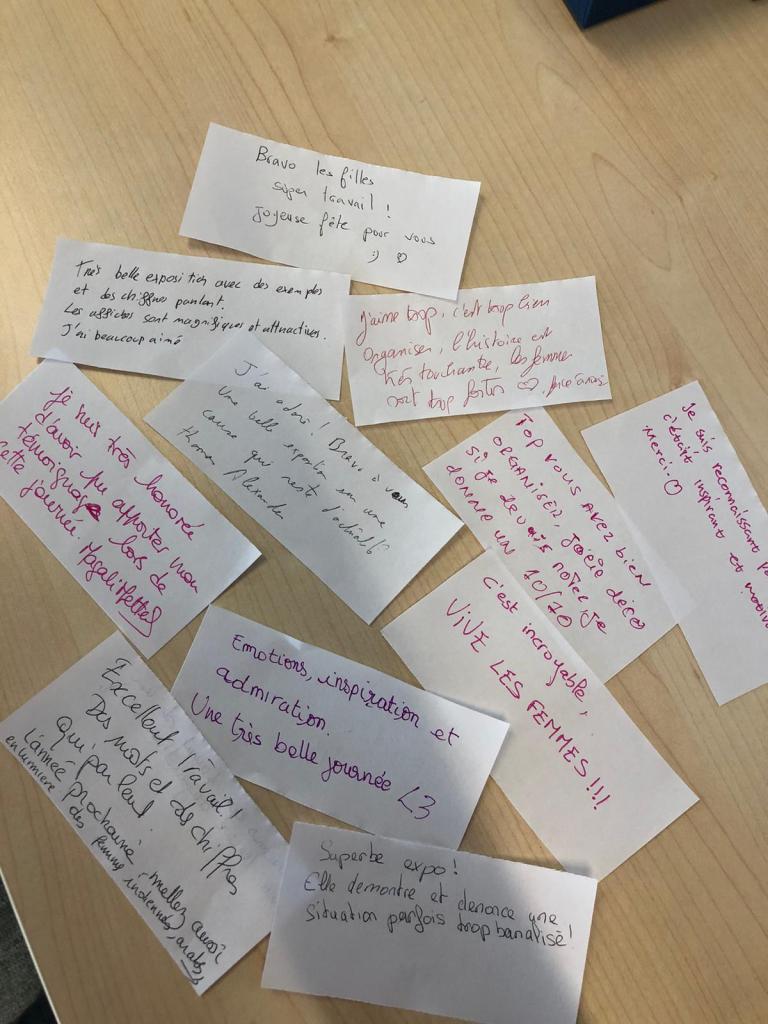 Bravo les filles
super travail !
Joyeuse fête pour vous
:) ♡
Très belle exposition avec des exemples
et des chiffres parlant.
Les affiches sont magnifiques et attractives.
J'ai beaucoup aimé
J'aime trop, c'est trop bien
organiser, l'histoire est
très touchante, les femmes
sont trop fortes ♡.
J'ai adoré ! Bravo à vous
Une belle exposition sur une
cause qui reste d'actualité
Thomas Alexandre
je suis très honorée
d'avoir pu apporter mon
témoignage lors de
cette journée. Magali
TOP VOUS AVEZ BIEN
ORGANISER, jolie déco
si je devais noter je
donne un 10/10
Je suis reconnaissant
c'était inspirant et
Merci ♡
c'est incroyable,
VIVE LES FEMMES !!!
Emotions, inspiration et
admiration.
Une très belle journée <3
Excellent Travail !
Des mots et des chiffres
qui parlent.
L'année prochaine mettez aussi
en lumière des femme indiennes, arabes
Superbe expo !
Elle demontre et denonce une
situation parfois trop banalisé !